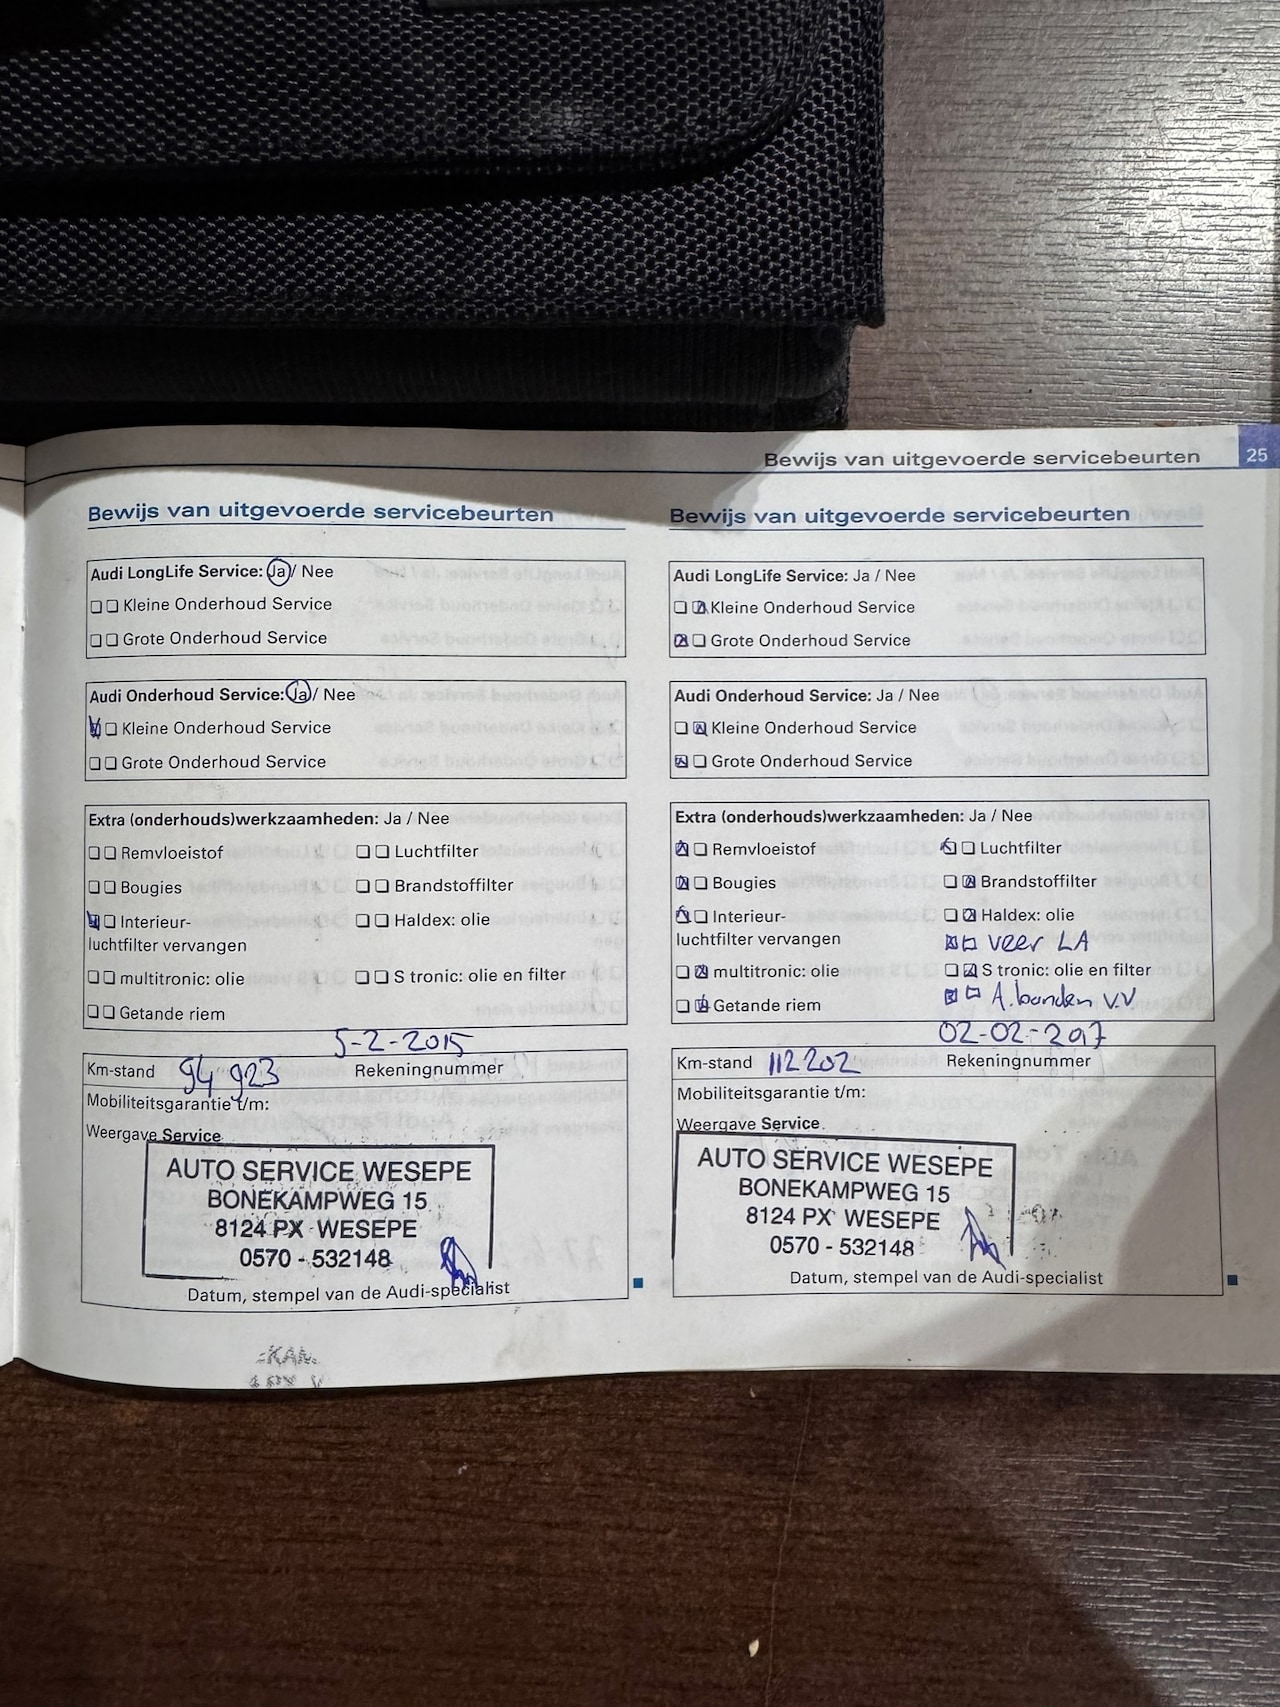 Bewijs van uitgevoerde servicebeurten 25
Bewijs van uitgevoerde servicebeurten
Audi LongLife Service: Ja / Nee
Kleine Onderhoud Service
Grote Onderhoud Service
Audi Onderhoud Service: Ja / Nee
Kleine Onderhoud Service
Grote Onderhoud Service
Extra (onderhouds)werkzaamheden: Ja / Nee
Remvloeistof Luchtfilter
Bougies Brandstoffilter
Interieur- Haldex: olie
luchtfilter vervangen
multitronic: olie S tronic: olie en filter
Getande riem
5-2-2015
Km-stand 94 923 Rekeningnummer
Mobiliteitsgarantie t/m:
Weergave Service
AUTO SERVICE WESEPE
BONEKAMPWEG 15
8124 PX WESEPE
0570 - 532148
Datum, stempel van de Audi-specialist
Bewijs van uitgevoerde servicebeurten
Audi LongLife Service: Ja / Nee
Kleine Onderhoud Service
Grote Onderhoud Service
Audi Onderhoud Service: Ja / Nee
Kleine Onderhoud Service
Grote Onderhoud Service
Extra (onderhouds)werkzaamheden: Ja / Nee
Remvloeistof Luchtfilter
Bougies Brandstoffilter
Interieur- Haldex: olie
luchtfilter vervangen veer LA
multitronic: olie S tronic: olie en filter
Getande riem A.banden V.V
02-02-2017
Km-stand 112202 Rekeningnummer
Mobiliteitsgarantie t/m:
Weergave Service
AUTO SERVICE WESEPE
BONEKAMPWEG 15
8124 PX WESEPE
0570 - 532148
Datum, stempel van de Audi-specialist